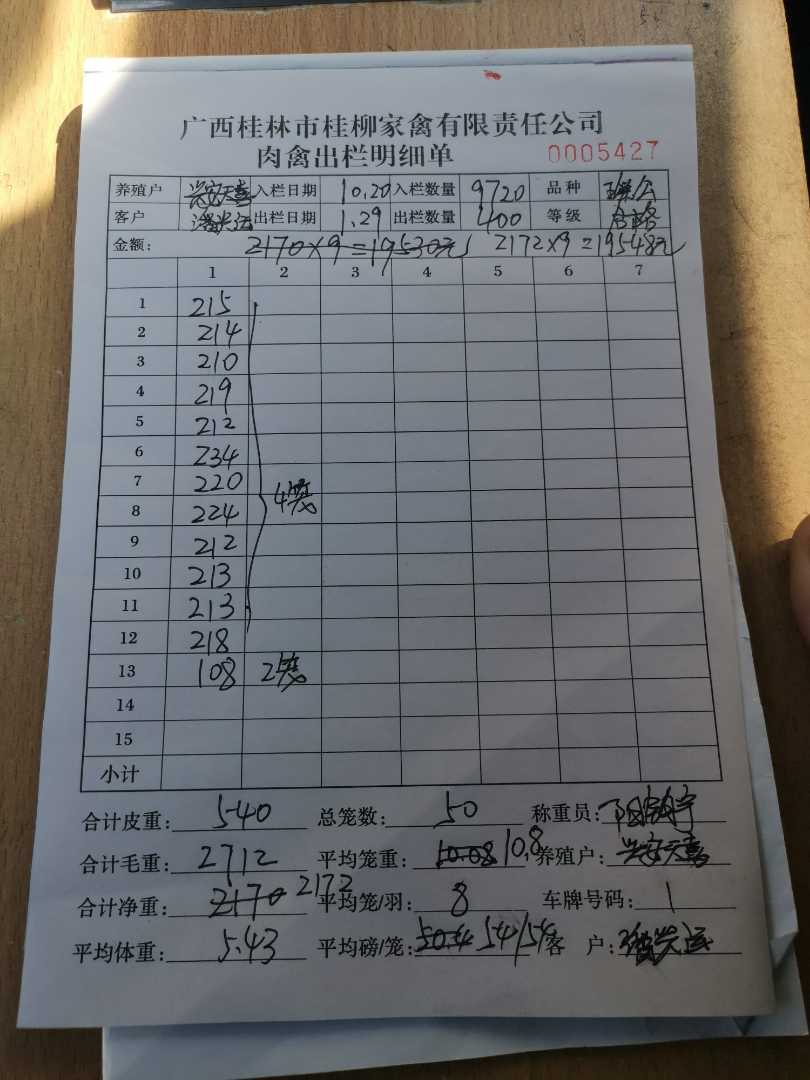 广西桂林市桂柳家禽有限责任公司
肉禽出栏明细单 0005427
养殖户 兴安天喜 入栏日期 10.20 入栏数量 9720 品种
客户 出栏日期 1.29 出栏数量 400 等级 合格
金额: 2170×9=19530元 2172×9=19548元
1 2 3 4 5 6 7
1 215
2 214
3 210
4 219
5 212
6 234
7 220
8 224 4笼
9 212
10 213
11 213
12 218
13 108 2笼
14
15
小计
合计皮重: 540 总笼数: 50 称重员:
合计毛重: 2712 平均笼重: 10.08 10.8 养殖户: 兴安天喜
合计净重: 2170 2172 平均笼/羽: 8 车牌号码: 1
平均体重: 5.43 平均磅/笼: 50.4 54/54 客 户: